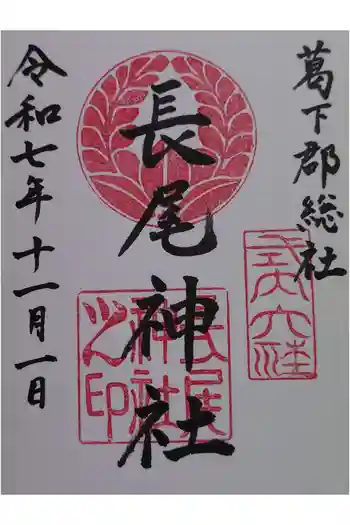 葛下郡総社
式内大社
長尾神社
長尾神社之印
令和七年十一月一日